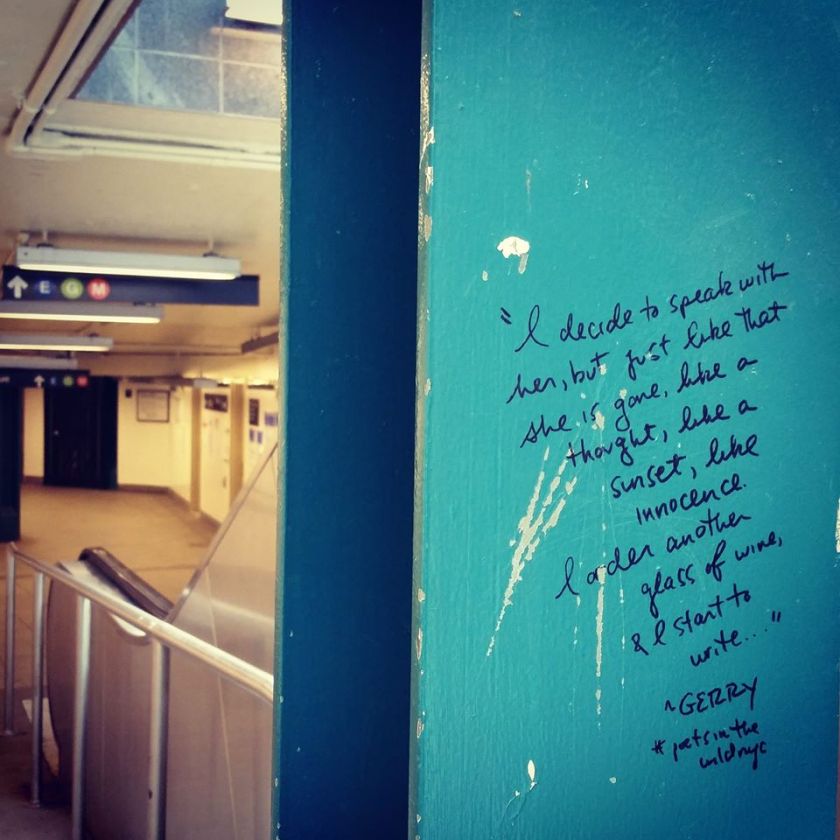 E G M
E G M
"I decide to speak with
her, but just like that
she is gone, like a
thought, like a
sunset, like
innocence.
I order another
glass of wine,
& I start to
write..."
~GERRY
# poets in the
wild nyc